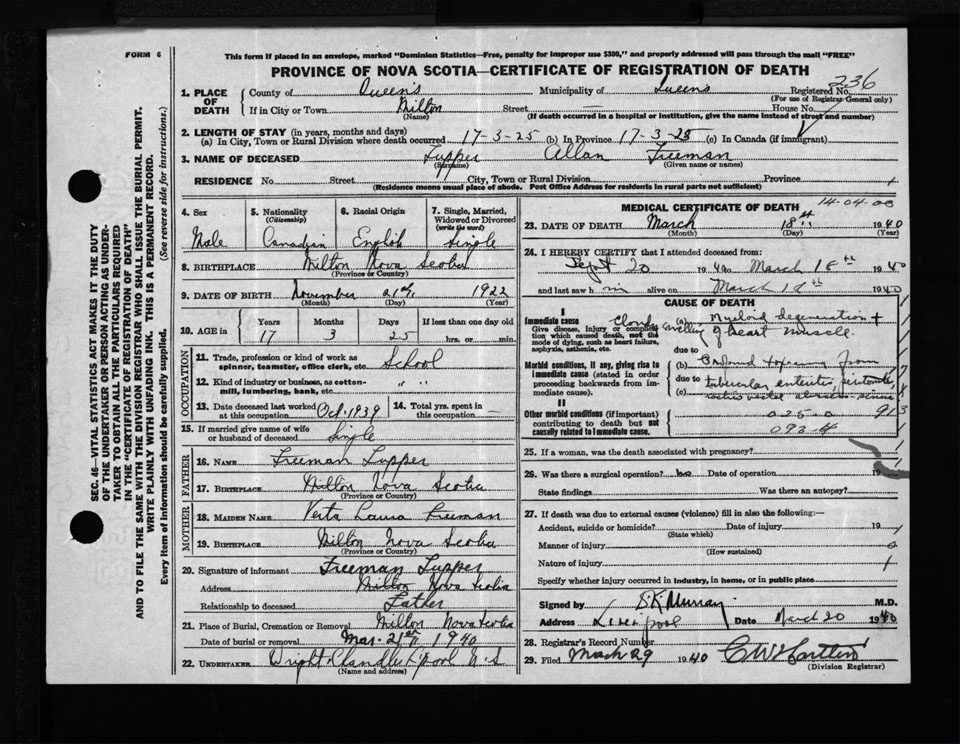 FORM 6
This form if placed in an envelope, marked "Dominion Statistics—Free, penalty for improper use $300," and properly addressed will pass through the mail "FREE"
PROVINCE OF NOVA SCOTIA—CERTIFICATE OF REGISTRATION OF DEATH
236
SEC. 46—VITAL STATISTICS ACT MAKES IT THE DUTY
OF THE UNDERTAKER OR PERSON ACTING AS UNDER-
TAKER TO OBTAIN ALL THE PARTICULARS REQUIRED
IN THE "CERTIFICATE OF REGISTRATION OF DEATH"
AND TO FILE THE SAME WITH THE DIVISION REGISTRAR WHO SHALL ISSUE THE BURIAL PERMIT.
WRITE PLAINLY WITH UNFADING INK. THIS IS A PERMANENT RECORD.
Every item of Information should be carefully supplied. (See reverse side for instructions.)
1. PLACE OF DEATH
County of Queens Municipality of Queens Registered No.
(For use of Registrar General only)
If in City or Town Milton Street — House No.
(Name) (If death occurred in a hospital or institution, give the name instead of street and number)
2. LENGTH OF STAY (in years, months and days)
(a) In City, Town or Rural Division where death occurred 17-3-25 (b) In Province 17-3-25 (c) In Canada (if immigrant)
3. NAME OF DECEASED Tupper Allan Freeman
(Surname) (Given name or names)
RESIDENCE No. Street City, Town or Rural Division Province
(Residence means usual place of abode. Post Office Address for residents in rural parts not sufficient)
4. Sex 5. Nationality (Citizenship) 6. Racial Origin 7. Single, Married, Widowed or Divorced (write the word)
Male Canadian English Single
8. BIRTHPLACE Milton Nova Scotia
(Province or Country)
9. DATE OF BIRTH November 21st 1922
(Month) (Day) (Year)
10. AGE in Years Months Days If less than one day old
17 3 25 hrs. or min.
OCCUPATION
11. Trade, profession or kind of work as School
spinner, teamster, office clerk, etc.
12. Kind of industry or business, as cotton- " "
mill, lumbering, bank, etc.
13. Date deceased last worked at this occupation Oct. 1939 14. Total yrs. spent in this occupation —
15. If married give name of wife or husband of deceased Single
FATHER
16. NAME Freeman Tupper
17. BIRTHPLACE Milton Nova Scotia
(Province or Country)
MOTHER
18. MAIDEN NAME Verta Laura Freeman
19. BIRTHPLACE Milton Nova Scotia
(Province or Country)
20. Signature of informant Freeman Tupper
Address Milton Nova Scotia
Relationship to deceased Father
21. Place of Burial, Cremation or Removal Milton Nova Scotia
Date of burial or removal Mar. 21st 1940
22. UNDERTAKER Wright Chandler L'pool N.S
(Name and address)
MEDICAL CERTIFICATE OF DEATH
23. DATE OF DEATH March 18th 1940
(Month) (Day) (Year)
24. I HEREBY CERTIFY that I attended deceased from:
Sept 20 to March 18th 1940
and last saw h im alive on March 18th 1940
CAUSE OF DEATH
I
Immediate cause (a) Cloudy swelling Myeloid degeneration +
Give disease, injury or complication of heart muscle.
which caused death, not the mode of dying, such as heart failure, asphyxia, asthenia, etc.
due to
Morbid conditions, if any, giving rise to (b) from
immediate cause (stated in order proceeding backwards from immediate cause). due to tubercular enteritis,
(c)
II
Other morbid conditions (if important) 025-0 913
contributing to death but not causally related to immediate cause. 093-4
25. If a woman, was the death associated with pregnancy?
26. Was there a surgical operation? no Date of operation 19
State findings Was there an autopsy?
27. If death was due to external causes (violence) fill in also the following:—
Accident, suicide or homicide? Date of injury 19
(State which)
Manner of injury
(How sustained)
Nature of injury
Specify whether injury occurred in industry, in home, or in public place
Signed by Murray M.D.
Address Liverpool Date March 20 1940
28. Registrar's Record Number
29. Filed March 29 1940
(Division Registrar)